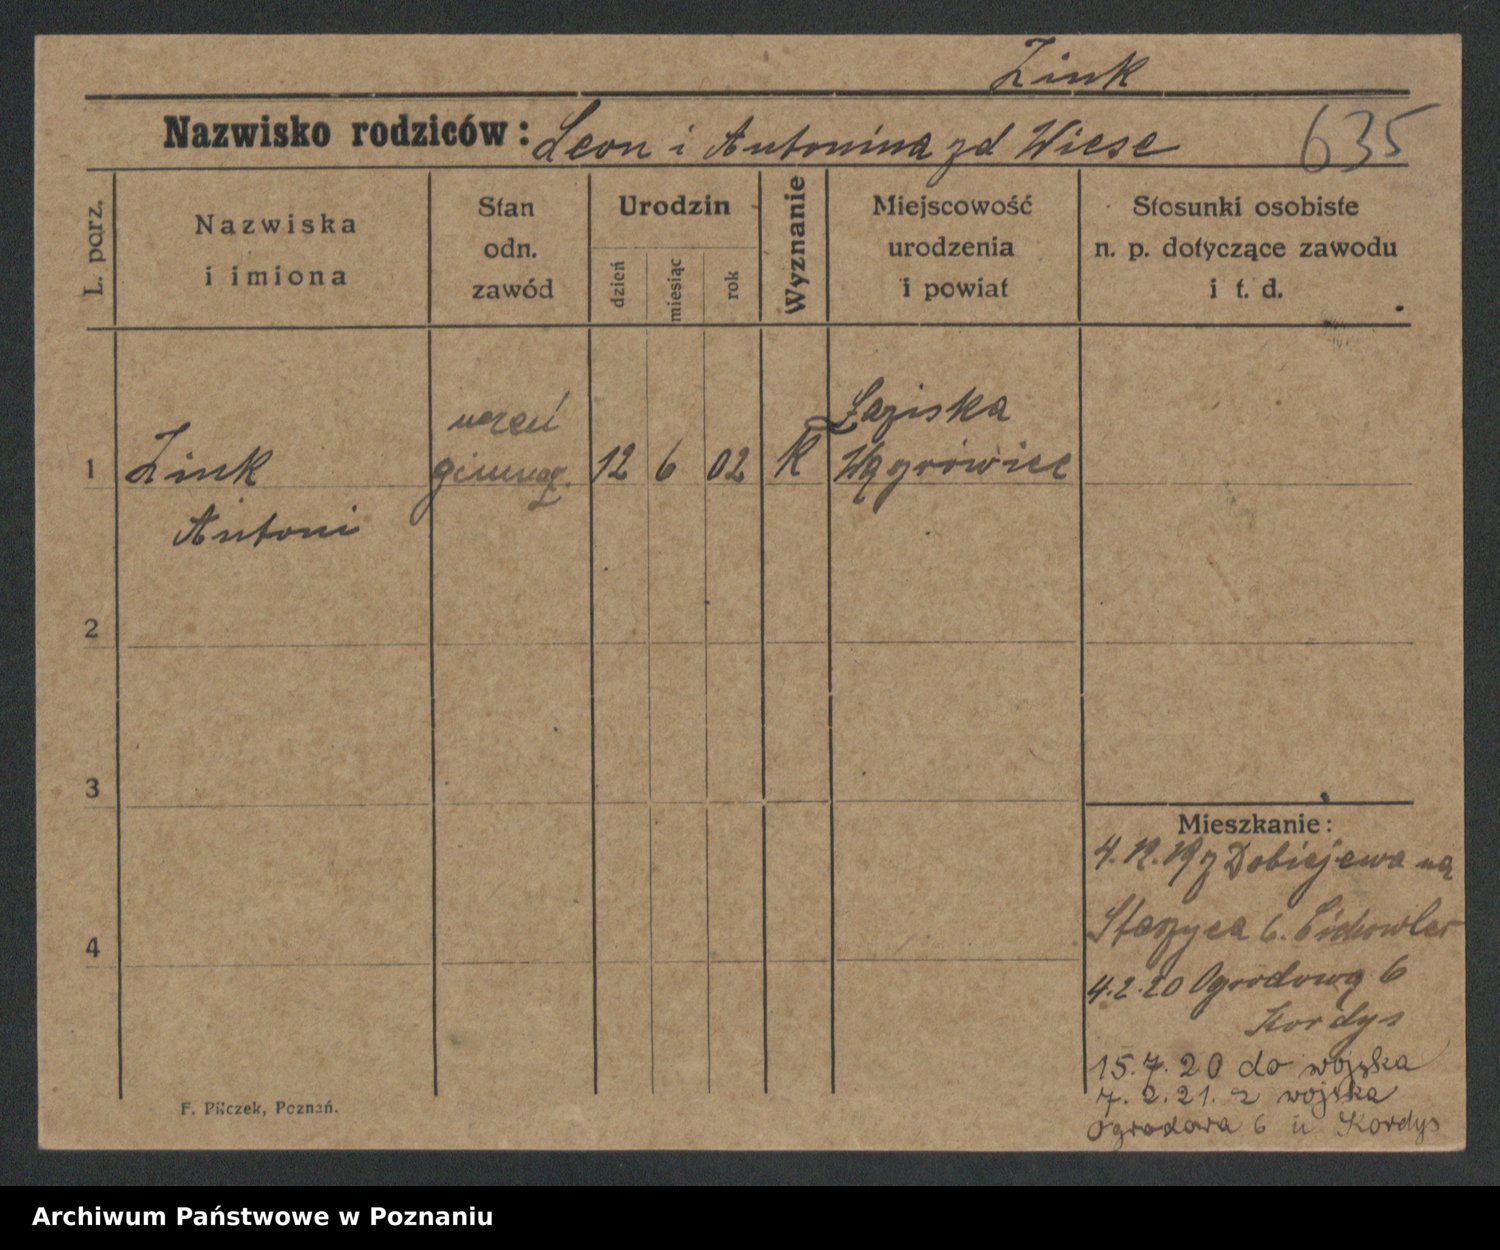 Zink
Nazwisko rodziców: Leon i Antonina zd Wiese 635
L. porz.
Nazwiska
i imiona
Stan
odn.
zawód
Urodzin
dzień
miesiąc
rok
Wyznanie
Miejscowość
urodzenia
i powiat
Stosunki osobiste
n. p. dotyczące zawodu
i t. d.
uczeń Łaziska
1 Zink gimnaz. 12 6 02 K Wągrówiec
Antoni
2
3
4
Mieszkanie:
4.12.19 z Dobiejewa na
6.
4.2.20 Ogrodową 6
Kordys
15.7.20 do wojska
7.2.21. z wojska
Ogrodowa 6 u Kordys
F. Pilczek, Poznań.
Archiwum Państwowe w Poznaniu